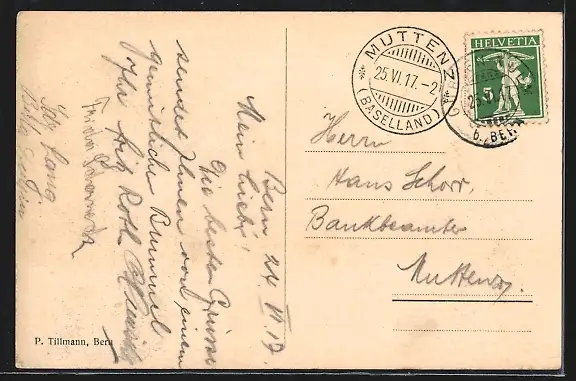 Bern 24. VI. 17.
Mein Lieb!
Die besten Grüsse
sendet Ihnen von einem
gemütlichen Bummel
Ihr Fritz Roth
Jos Lang
P. Tillmann, Bern
MUTTENZ
25.VI.17.-2
(BASELLAND)
HELVETIA
5
b/BERN
Herrn
Hans Schorr,
Bankbeamter
Muttenz.